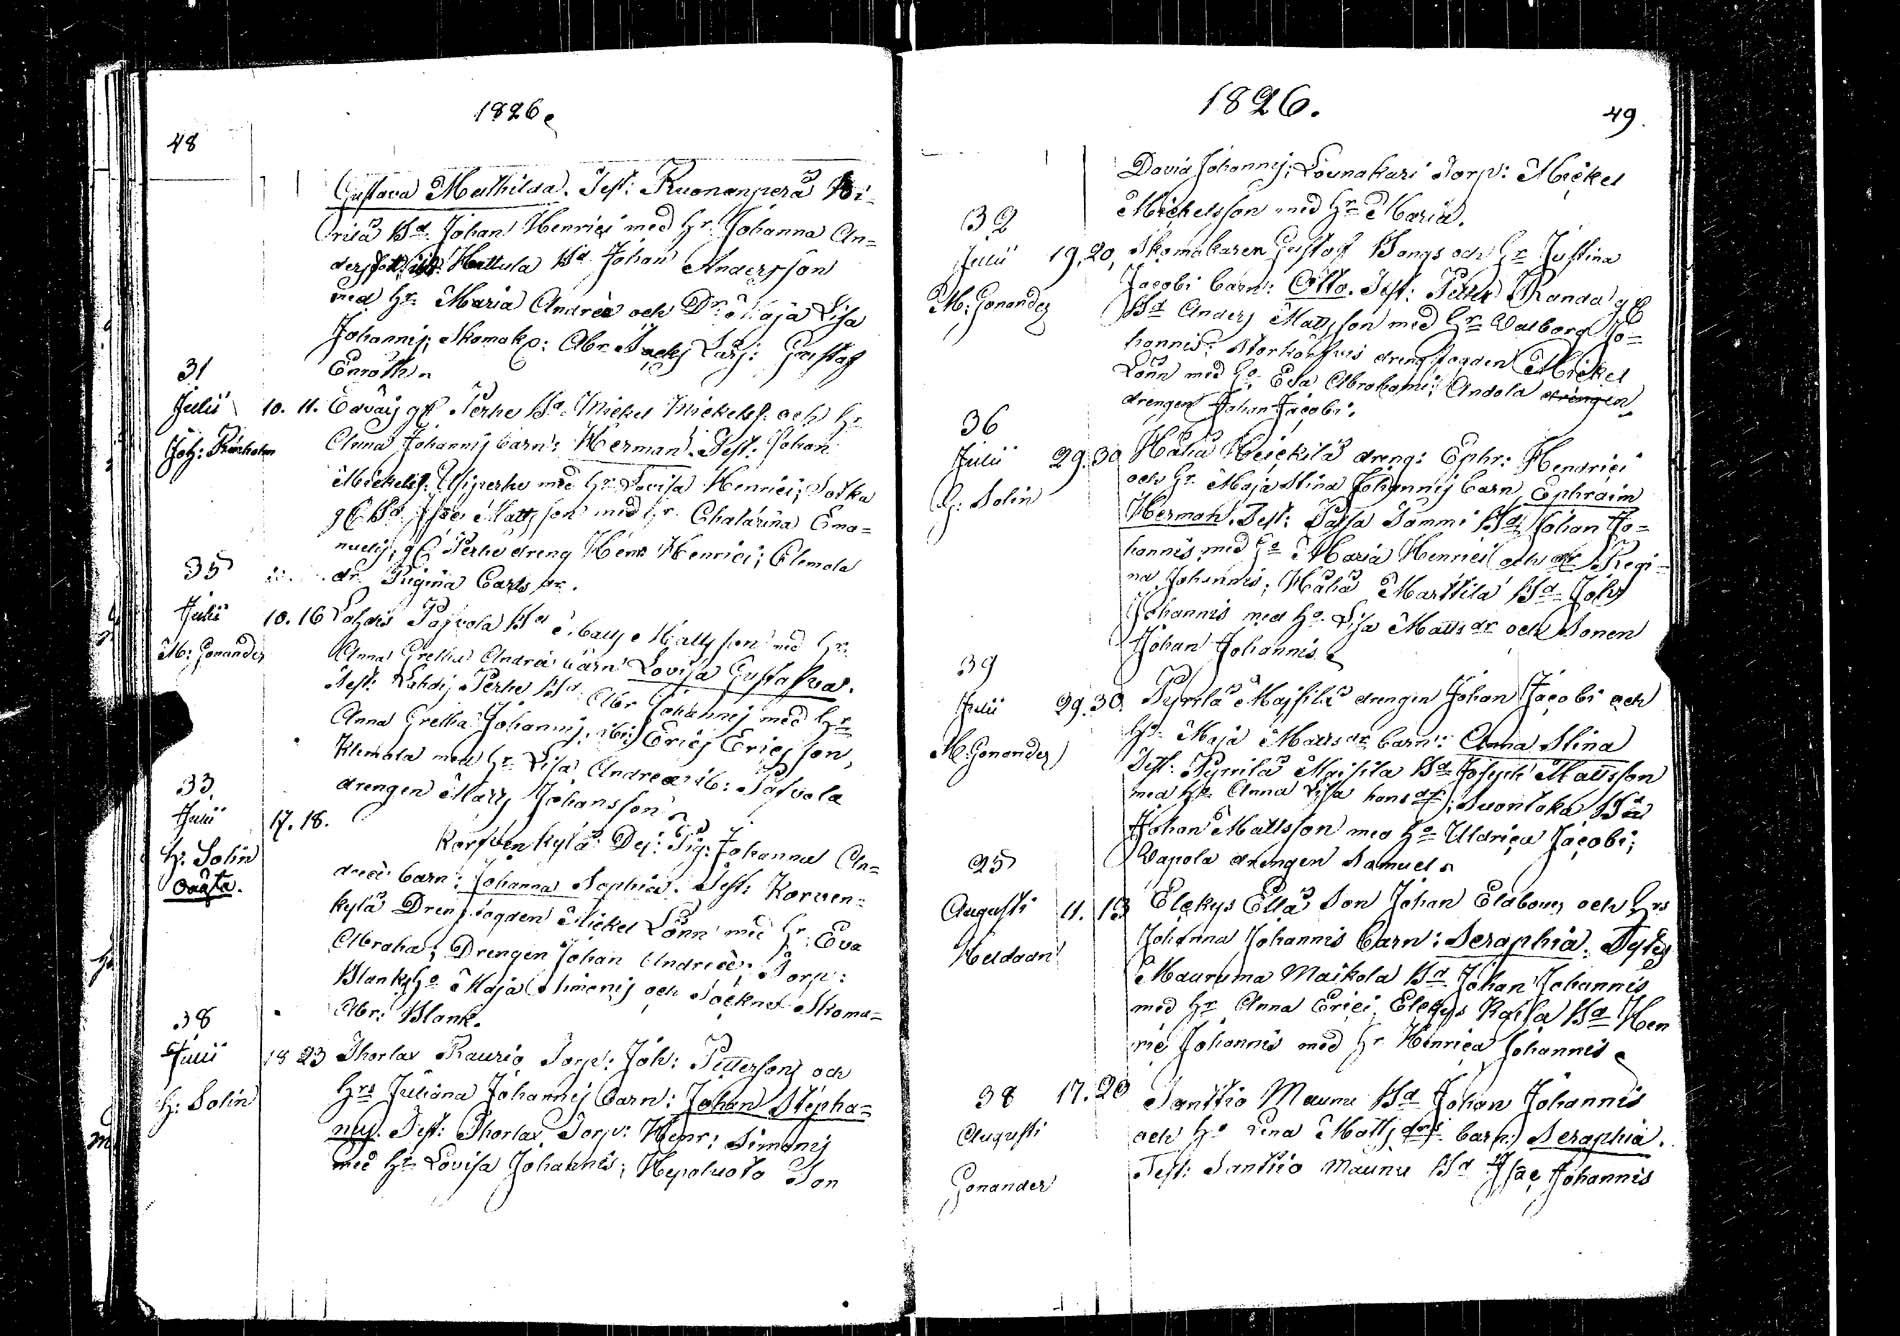 48
1826.
Gustava Mathilda. Test: Ruonanperä
Brita Bd. Johan Henrici med Hr. Johanna An=
Hattula Bd Johan Andersson
med Hr. Maria Andreæ och Dr. Maja Lisa
Johannis; Skomak: Abr. Lars: Gustaf
Enroth.
31
Julii 10. 11. Edvais gl. Perhe Bd. Mickel Mickelss. och Hr
Joh: Anna Johannis barn: Herman. Test: Johan
Mickelss. Yliperhe med Hr. Lovisa Henrici; Sotka
gl Bd. Isac Mattsson med Hr. Chatarina Ema=
nuelis; gl. Perhe dreng Henr Henrici; Clemola
35
dr. Regina Carls dr.
Julii 10. 16 Lahdis Pajvola Bd Matts Mattsson med Hr.
M: Gonander Anna Gretha Andreæ barn Lovisa Gustafva.
Test: Lahdis Perhe Bd. Abr Johannis med Hr
Anna Gretha Johannis; Erics Ericsson,
Klemola med Hr. Lisa Andreæ; Pajvola
33
drengen Matts Johansson.
Julii 17. 18.
Korfvenkylä: Dej: Pig: Johanna An=
H: Solin
dreæ barn: Johanna Sophia. Test: Korven=
oäkta.
kylä Drengfogden Mickel Lönn med Hr. Eva
Abraha; Drengen Johan Andreæ; Torp:
Blanks Ho Maja Simonis och Sockne Skoma=
Abr: Blank.
38
Julii 18 23 Thorlax Raurio Torp: Joh: Petterson och
H: Solin Hrs Juliana Johannis barn: Johan Stepha=
nus. Test: Thorlax Torp: Henr: Simonis
med Hr. Lovisa Johannis; Hepoluoto Son
1826.
49.
David Johannis; Lounakari Torp: Mickel
Mickelsson med Hr. Maria.
32
Julii 19. 20. Skomakaren Gustaf Bongs och Hr Justina
M: Gonander Jacobi barn: Otto. Test: Randa gl
Bd Anders Mattsson med Hr Valborg Jo=
hannis; drengfogden Mickel
Lönn med Ho Eva Abrahami; Andola drengen
drengen Johan Jacobi.
36
Julii 29. 30 Heickilä dreng: Ephr: Hendrici
G: Solin och Hr. Maja Stina Johannis barn Ephraim
Herman. Test: Passa Sammi Bd Johan Jo=
hannis med Ho Maria Henrici och dr Regi=
na Johannis; Marttila Bd Joh
Johannis med Ho. Lisa Matts dr och Sonen
Johan Johannis.
39
Julii 29. 30. Pyrrilä Majsila drengen Johan Jacobi och
M: Gonander Ho Maja Matts dr barn: Anna Stina
Test: Pyrrilä Majsila Bd Joseph Mattsson
med Ho. Anna Lisa hans dr; Suontaka Bd
Johan Mattsson med Ho Uldrica Jacobi;
Vapola drengen Samuel.
25
Augusti 11. 13 Elekys Ellä Son Johan Eldbom och Hrs
Heldaan Johanna Johannis barn: Seraphia.
Maununa Maikola Bd Johan Johannis
med Hr Anna Erici; Elekys Kaila Bd Hen
ric Johannis med Hr Henrica Johannis.
38 17. 20 Santtio Maunu Bd Johan Johannis
Augusti och Ho Lena Matts drs barn: Seraphia.
Gonander Test: Santtio Maunu Bd Isac Johannis